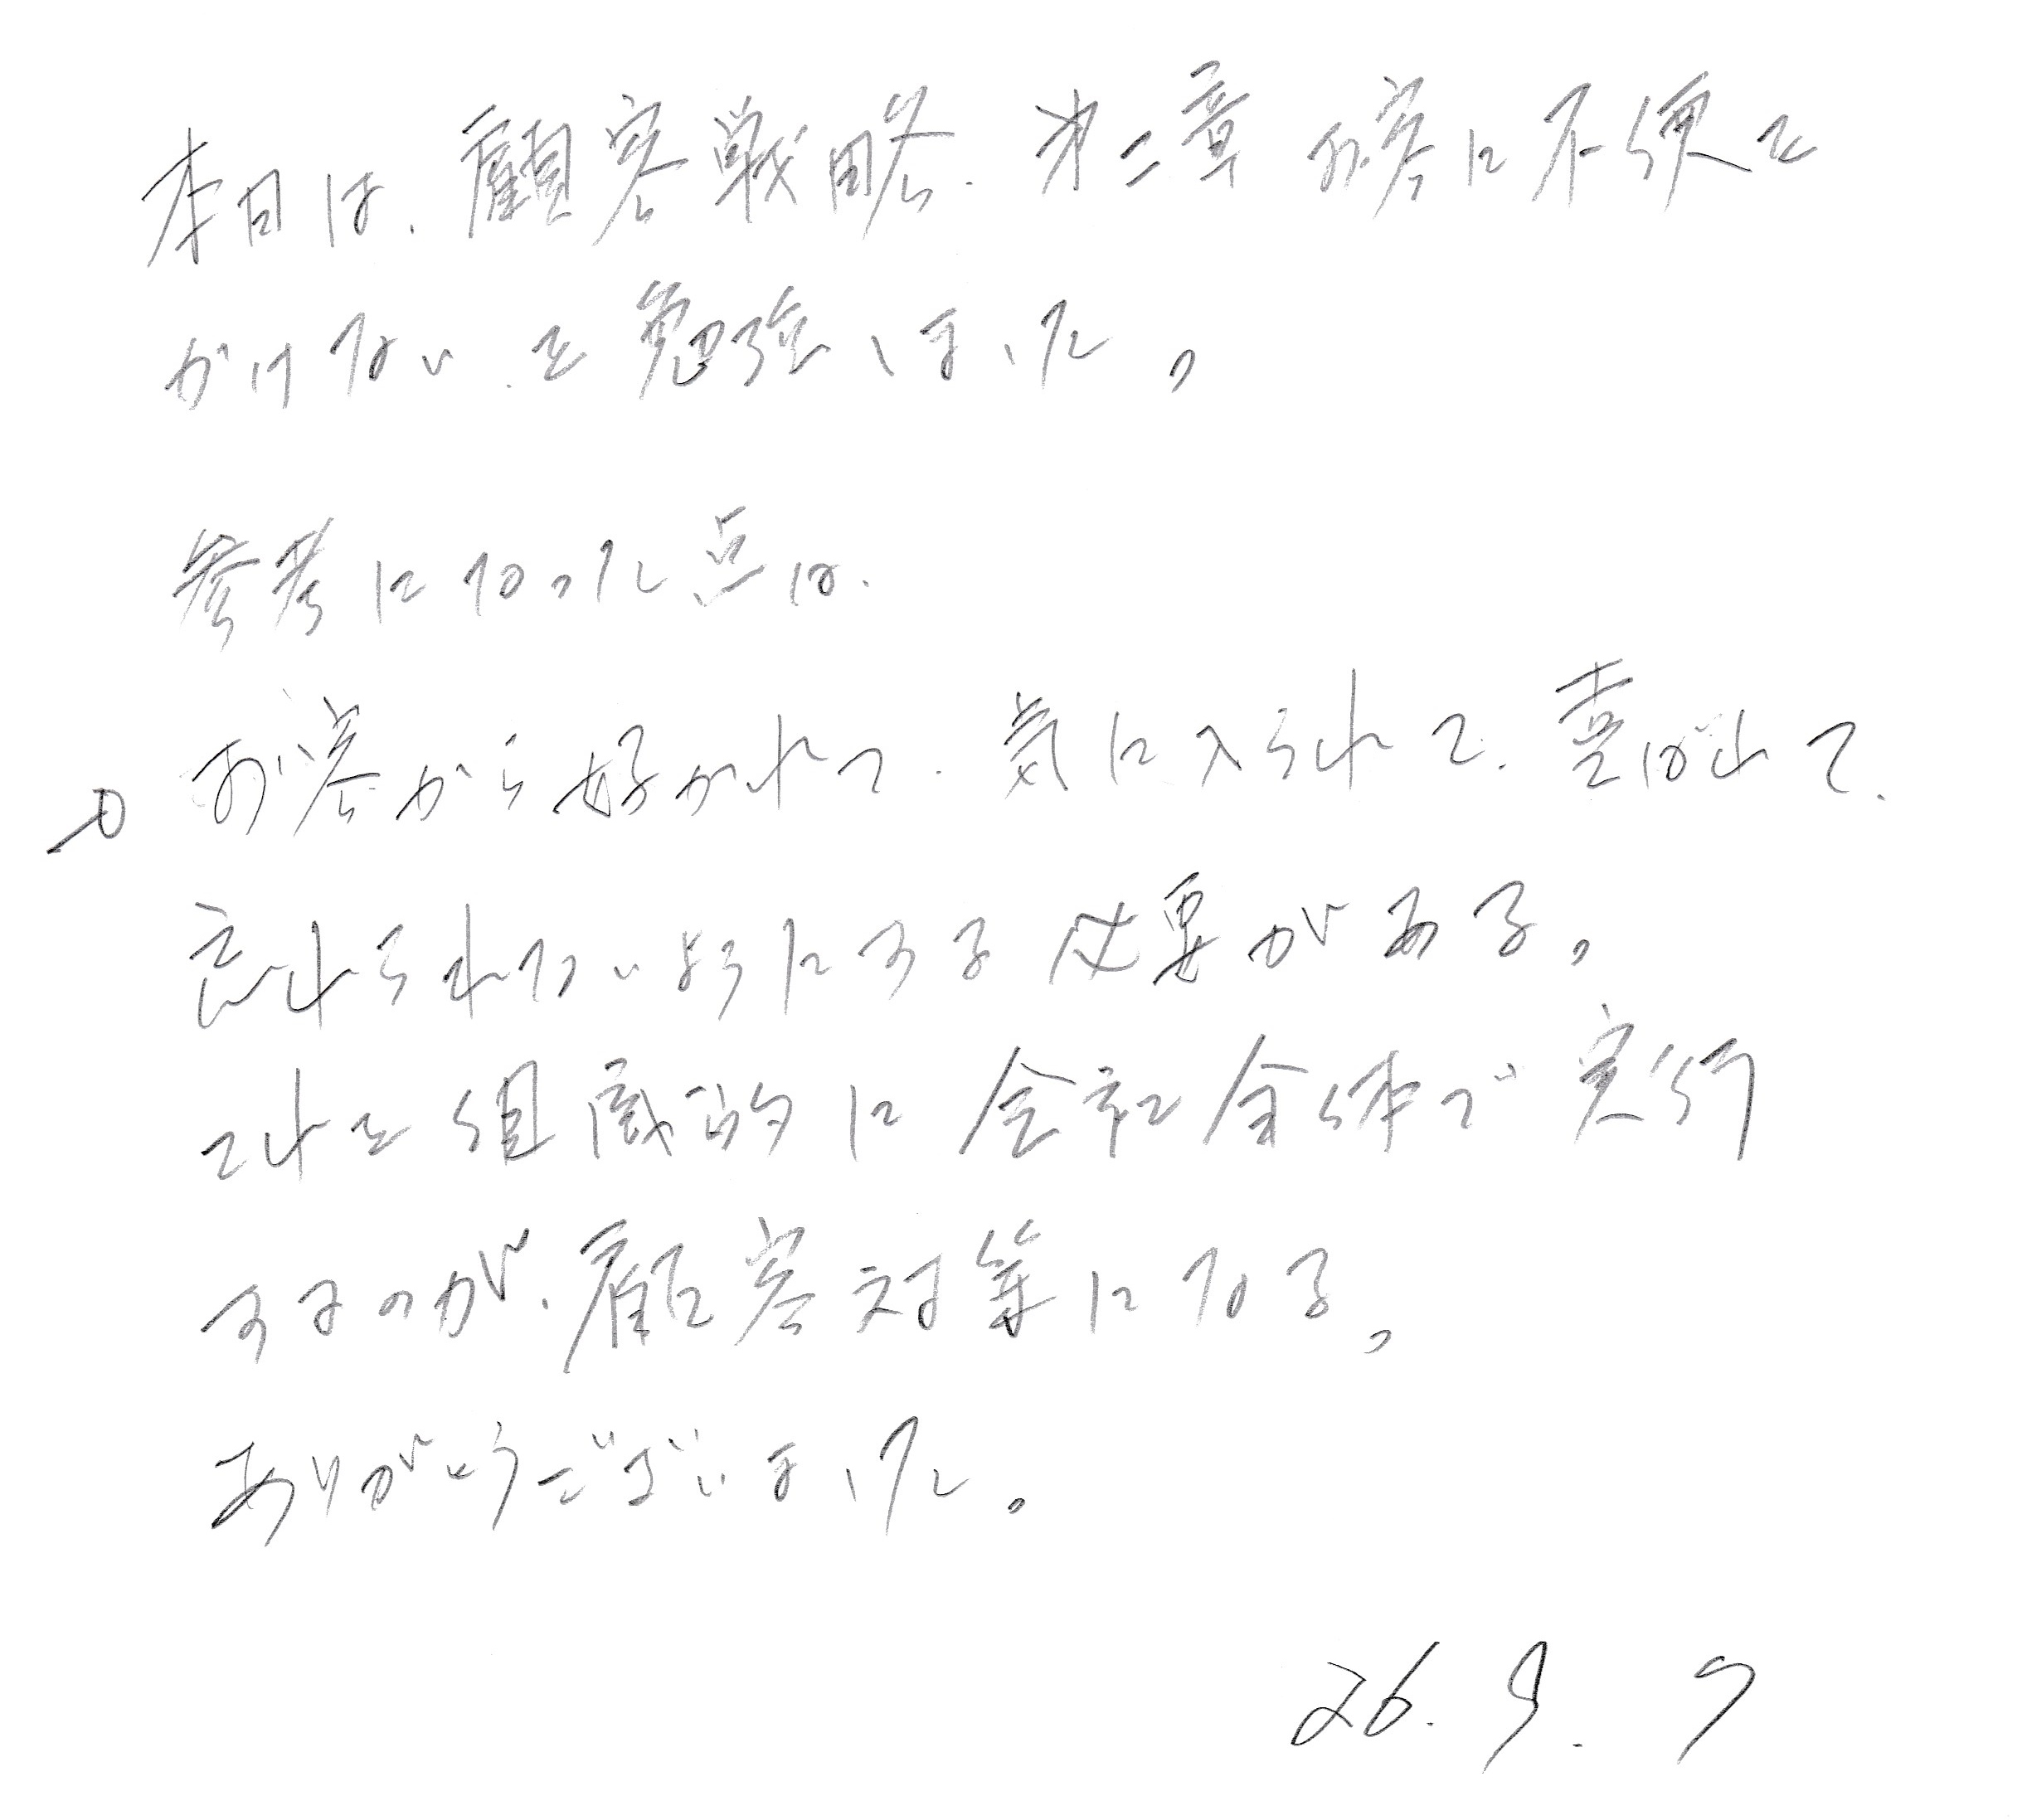 本日は、顧客戦略、第二章 お客に不便を
かけない、を勉強しました。
参考になった点は、
お客から好かれて、気に入られて、喜ばれて、
忘れられないようにする必要がある。
これを組織的に会社全体で実行
するのが、顧客対策になる。
ありがとうございました。
26. 9. 7